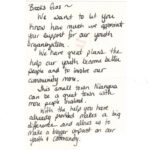 Books Plus -
We want to let you
know how much we appreciate
your support for our youth
organization.
We have great plans to
help our youth become better
people and to involve our
community more.
This small town Niangua
can be a great town with
more people involved.
With the help you have
already provided makes a big
difference - and allows us to
make a bigger impact on our
youth & community.